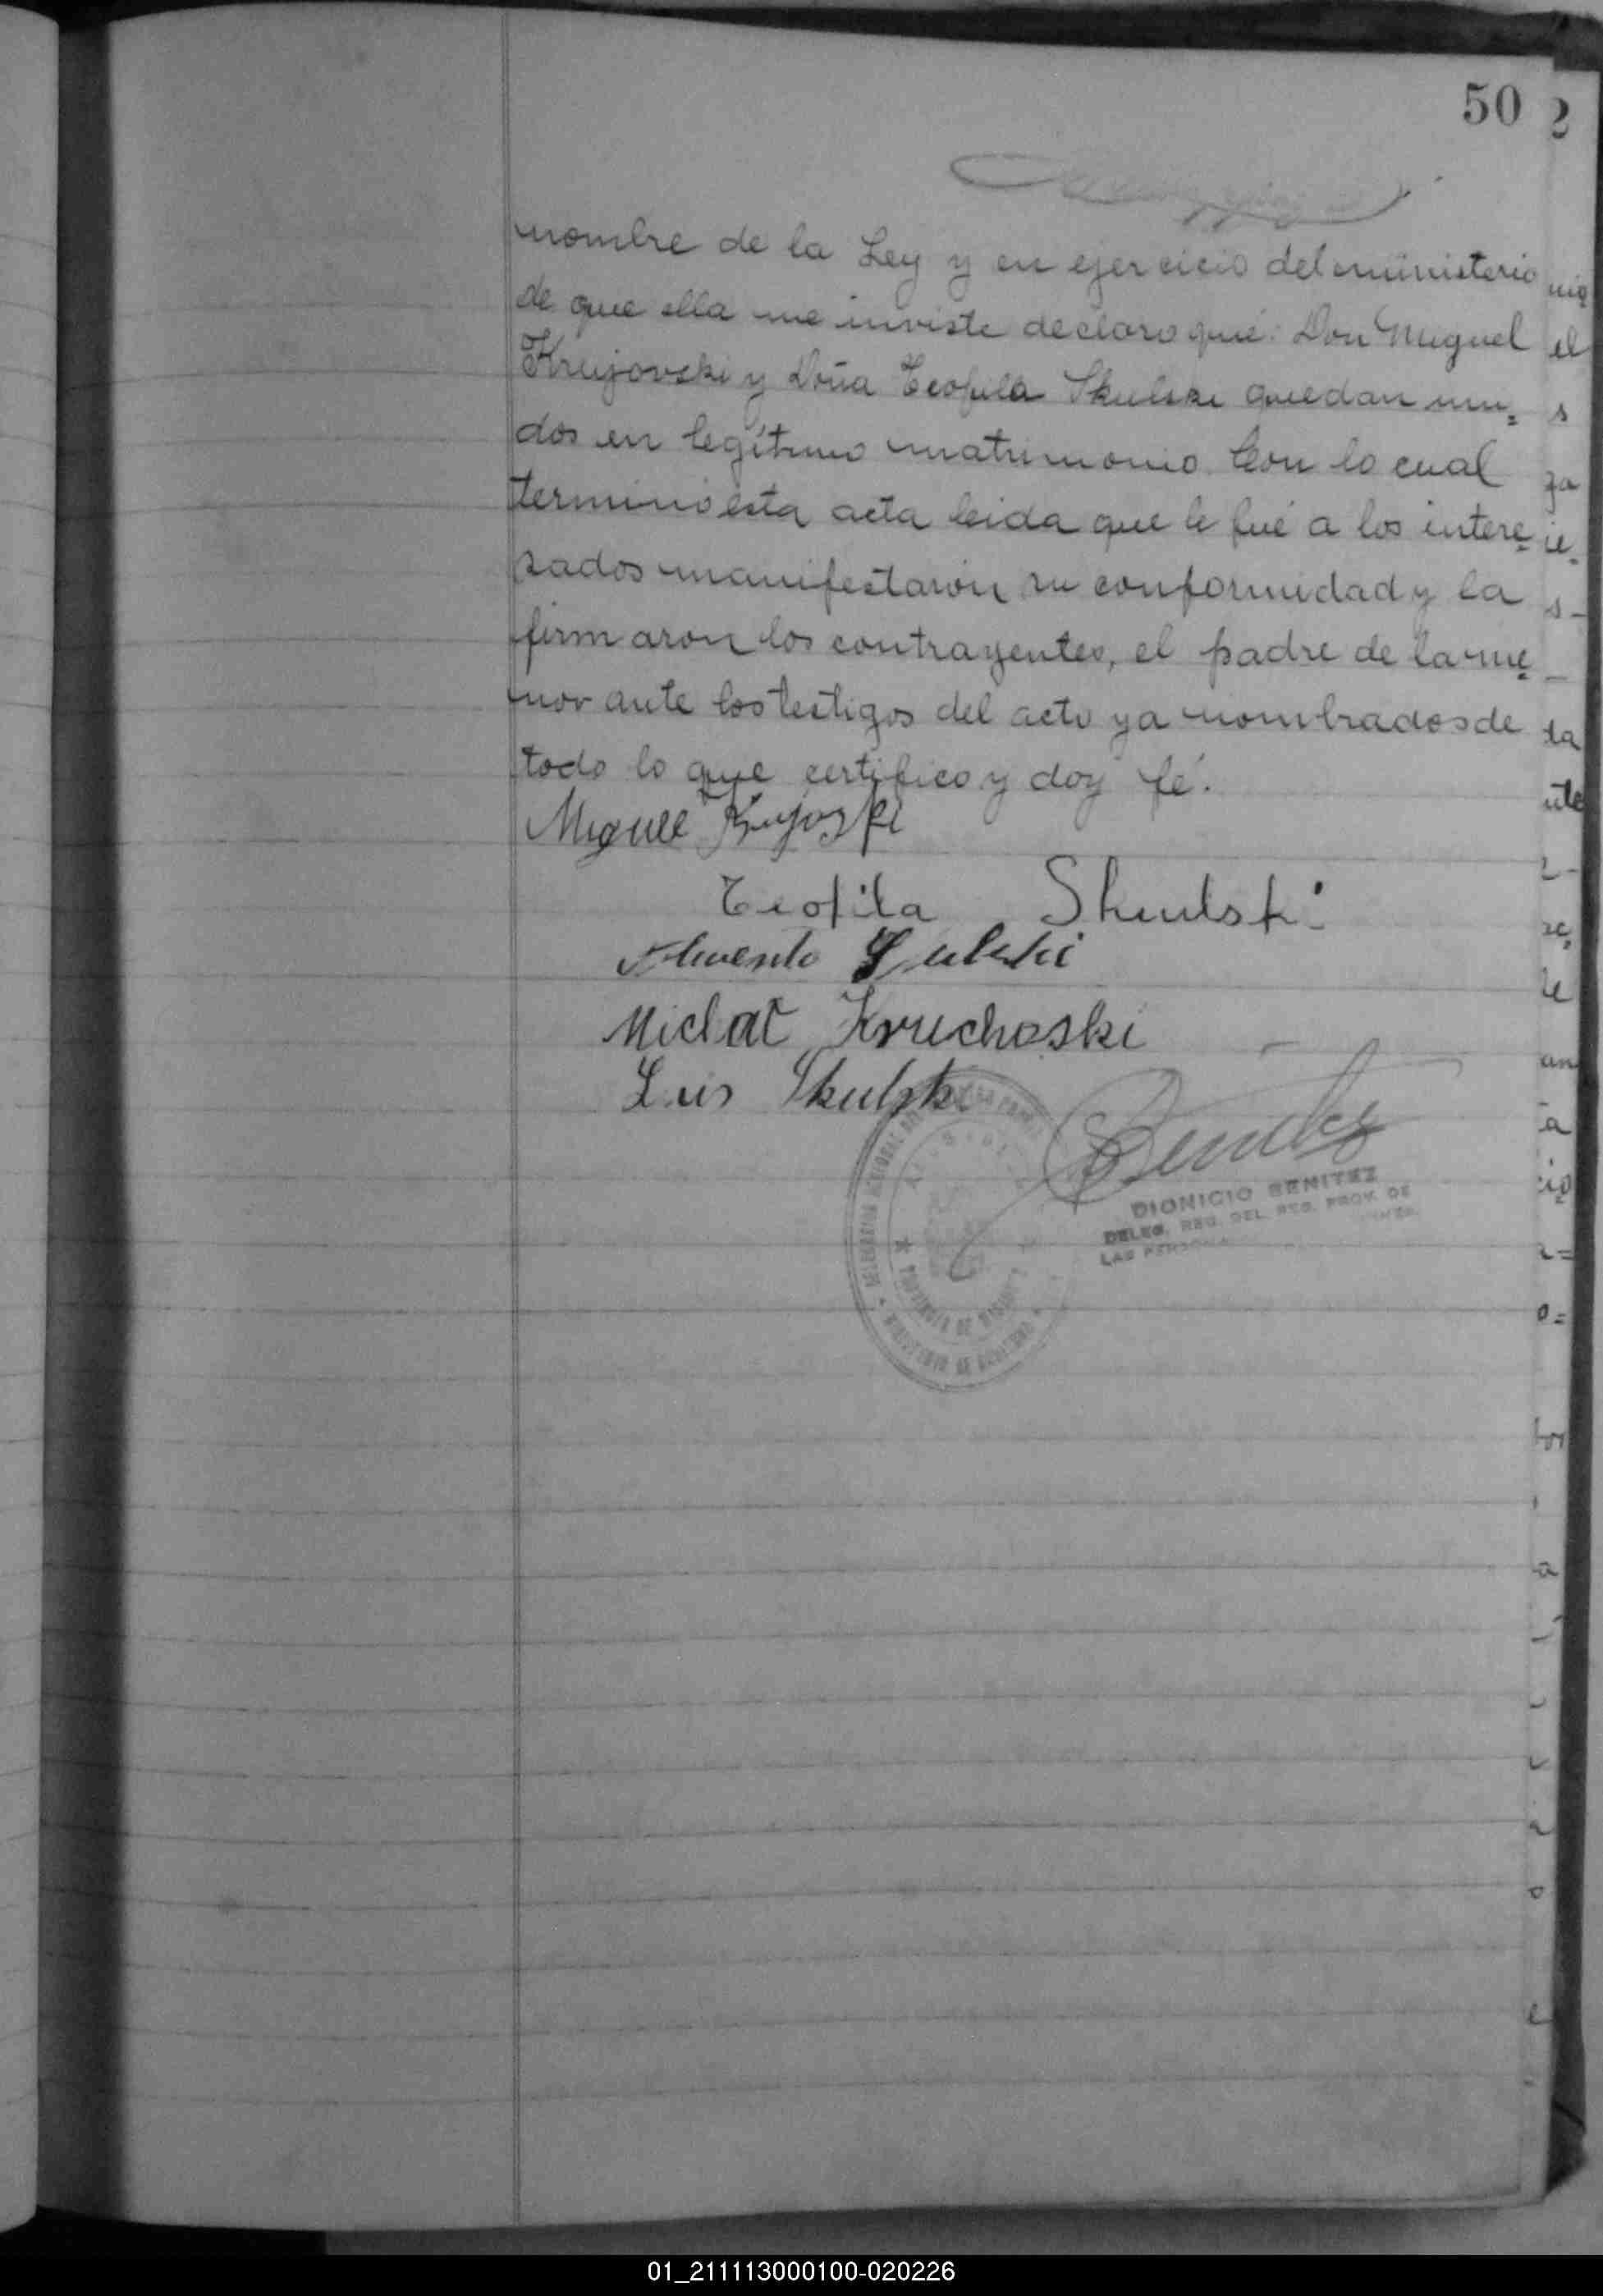 50
nombre de la Ley y en ejercicio del ministerio
de que ella me inviste declaro que: Don Miguel
Krujovski y Doña Teofila Skulski quedan uni=
dos en legítimo matrimonio. Con lo cual
terminó esta acta leida que le fué a los intere
sados manifestaron su conformidad y la
firmaron los contrayentes, el padre de la me
nor ante los testigos del acto ya nombrados de
todo lo que certifico y doy fé.
Miguel
Teofila Skulski
Michat Kruchoski
Luis Skulski
Benitez
DIONICIO BENITEZ
DELEG. REG. DEL REG. PROV. DE
LAS PERSONAS
PROVINCIA DE MISIONES
MINISTERIO DE GOBIERNO
01_211113000100-020226